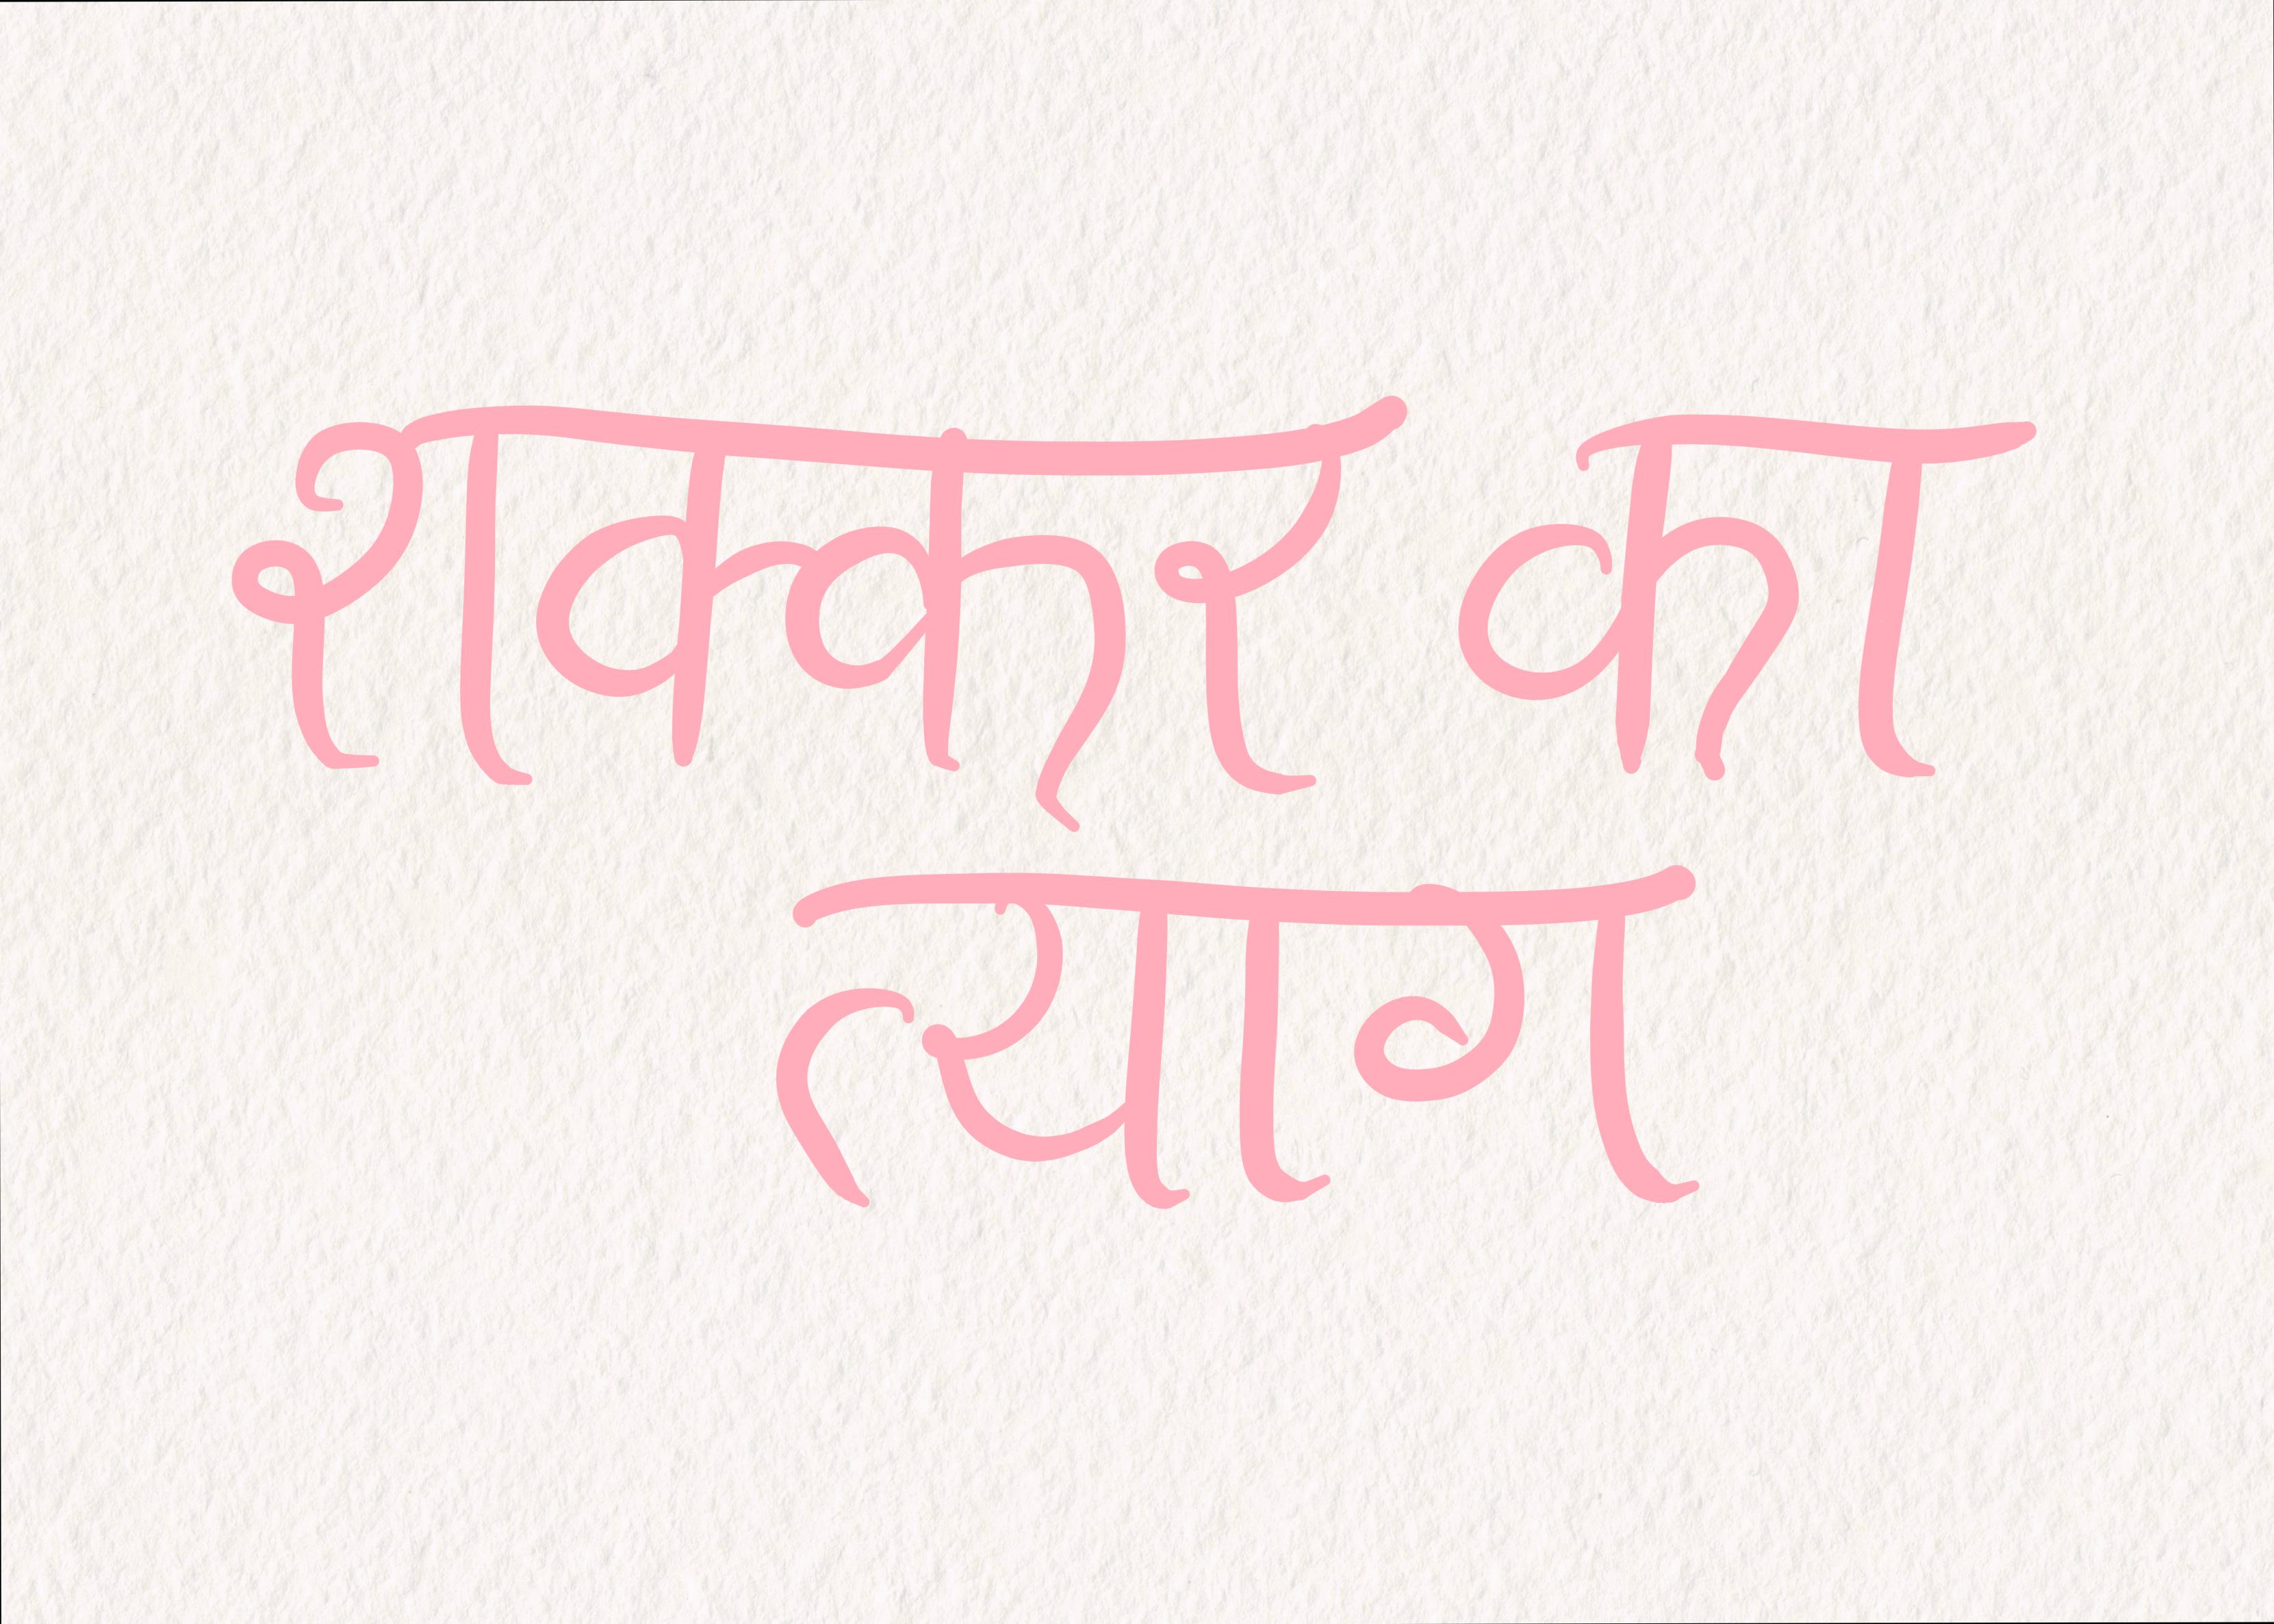 शक्कर का
त्याग